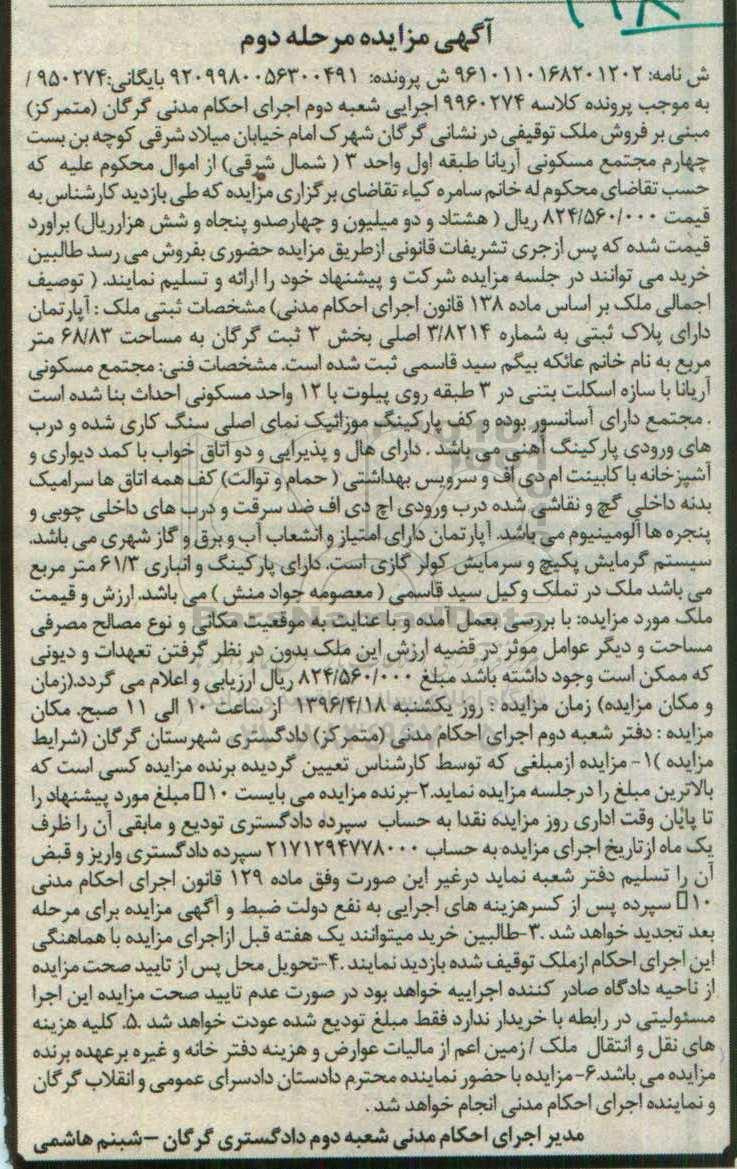 ۲۱۸
آگهی مزایده مرحله دوم
ش نامه: ۹۶۱۰۱۱۰۱۶۸۲۰۱۲۰۲ ش پرونده: ۹۲۰۹۹۸۰۰۵۶۳۰۰۴۹۱ بایگانی:۹۵۰۲۷۴ /
به موجب پرونده کلاسه ۹۹۶۰۲۷۴ اجرایی شعبه دوم اجرای احکام مدنی گرگان (متمرکز)
مبنی بر فروش ملک توقیفی در نشانی گرگان شهرک امام خیابان میلاد شرقی کوچه بن بست
چهارم مجتمع مسکونی آریانا طبقه اول واحد ۳ ( شمال شرقی) از اموال محکوم علیه که
حسب تقاضای محکوم له خانم سامره کیاء تقاضای برگزاری مزایده که طی بازدید کارشناس به
قیمت ۸۲۴/۵۶۰/۰۰۰ ریال ( هشتاد و دو میلیون و چهارصدو پنجاه و شش هزارریال) براورد
قیمت شده که پس ازجری تشریفات قانونی ازطریق مزایده حضوری بفروش می رسد طالبین
خرید می توانند در جلسه مزایده شرکت و پیشنهاد خود را ارائه و تسلیم نمایند. ( توصیف
اجمالی ملک بر اساس ماده ۱۳۸ قانون اجرای احکام مدنی) مشخصات ثبتی ملک : آپارتمان
دارای پلاک ثبتی به شماره ۳/۸۲۱۴ اصلی بخش ۳ ثبت گرگان به مساحت ۶۸/۸۳ متر
مربع به نام خانم عاتکه بیگم سید قاسمی ثبت شده است. مشخصات فنی: مجتمع مسکونی
آریانا با سازه اسکلت بتنی در ۳ طبقه روی پیلوت با ۱۲ واحد مسکونی احداث بنا شده است
. مجتمع دارای آسانسور بوده و کف پارکینگ موزائیک نمای اصلی سنگ کاری شده و درب
های ورودی پارکینگ آهنی می باشد . دارای هال و پذیرایی و دو اتاق خواب با کمد دیواری و
آشپزخانه با کابینت ام دی اف و سرویس بهداشتی ( حمام و توالت) کف همه اتاق ها سرامیک
بدنه داخلی گچ و نقاشی شده درب ورودی اچ دی اف ضد سرقت و درب های داخلی چوبی و
پنجره ها آلومینیوم می باشد. آپارتمان دارای امتیاز و انشعاب آب و برق و گاز شهری می باشد.
سیستم گرمایش پکیچ و سرمایش کولر گازی است. دارای پارکینگ و انباری ۶۱/۳ متر مربع
می باشد ملک در تملک وکیل سید قاسمی ( معصومه جواد منش ) می باشد. ارزش و قیمت
ملک مورد مزایده: با بررسی بعمل آمده و با عنایت به موقعیت مکانی و نوع مصالح مصرفی
مساحت و دیگر عوامل موثر در قضیه ارزش این ملک بدون در نظر گرفتن تعهدات و دیونی
که ممکن است وجود داشته باشد مبلغ ۸۲۴/۵۶۰/۰۰۰ ریال ارزیابی و اعلام می گردد.(زمان
و مکان مزایده) زمان مزایده : روز یکشنبه ۱۳۹۶/۴/۱۸ از ساعت ۱۰ الی ۱۱ صبح. مکان
مزایده : دفتر شعبه دوم اجرای احکام مدنی (متمرکز) دادگستری شهرستان گرگان (شرایط
مزایده )۱- مزایده ازمبلغی که توسط کارشناس تعیین گردیده برنده مزایده کسی است که
بالاترین مبلغ را درجلسه مزایده نماید.۲-برنده مزایده می بایست ۱۰▯ مبلغ مورد پیشنهاد را
تا پایان وقت اداری روز مزایده نقدا به حساب سپرده دادگستری تودیع و مابقی آن را ظرف
یک ماه ازتاریخ اجرای مزایده به حساب ۲۱۷۱۲۹۴۷۷۸۰۰۰ سپرده دادگستری واریز و قبض
آن را تسلیم دفتر شعبه نماید درغیر این صورت وفق ماده ۱۲۹ قانون اجرای احکام مدنی
۱۰▯ سپرده پس از کسرهزینه های اجرایی به نفع دولت ضبط و آگهی مزایده برای مرحله
بعد تجدید خواهد شد .۳-طالبین خرید میتوانند یک هفته قبل ازاجرای مزایده با هماهنگی
این اجرای احکام ازملک توقیف شده بازدید نمایند .۴-تحویل محل پس از تایید صحت مزایده
از ناحیه دادگاه صادر کننده اجراییه خواهد بود در صورت عدم تایید صحت مزایده این اجرا
مسئولیتی در رابطه با خریدار ندارد فقط مبلغ تودیع شده عودت خواهد شد .۵. کلیه هزینه
های نقل و انتقال ملک / زمین اعم از مالیات عوارض و هزینه دفتر خانه و غیره برعهده برنده
مزایده می باشد.۶-مزایده با حضور نماینده محترم دادستان دادسرای عمومی و انقلاب گرگان
و نماینده اجرای احکام مدنی انجام خواهد شد .
مدیر اجرای احکام مدنی شعبه دوم دادگستری گرگان –شبنم هاشمی